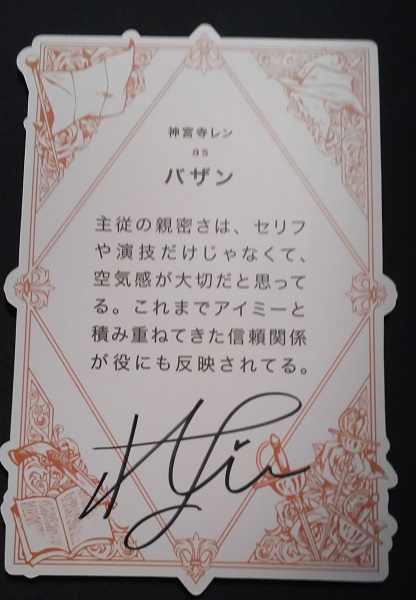 神宮寺レン
as
バザン
主従の親密さは、セリフ
や演技だけじゃなくて、
空気感が大切だと思って
る。これまでアイミーと
積み重ねてきた信頼関係
が役にも反映されてる。